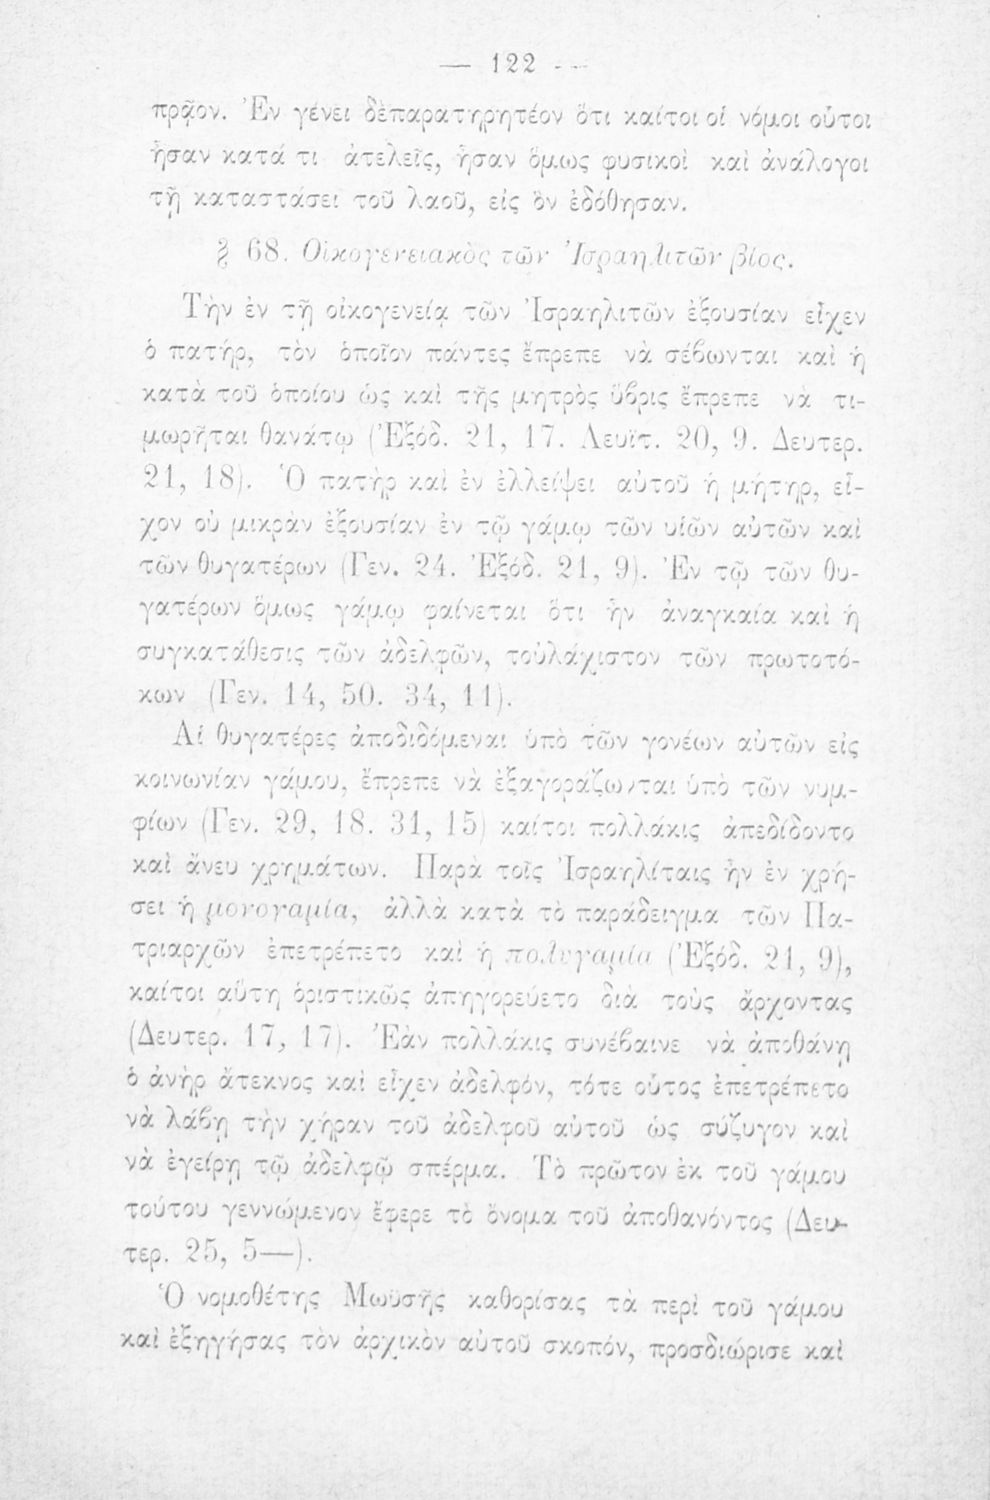 — 122 —
πρᾷον. Ἐν γένει δὲπαρατηρητέον ὅτι καίτοι οἱ νόμοι οὗτοι
ἦσαν κατά τι ἀτελεῖς, ἦσαν ὅμως φυσικοὶ καὶ ἀνάλογοι
τῇ καταστάσει τοῦ λαοῦ, εἰς ὃν ἐδόθησαν.
§ 68. Οἰκογενειακὸς τῶν Ἰσραηλιτῶν βίος.
Τὴν ἐν τῇ οἰκογενείᾳ τῶν Ἰσραηλιτῶν ἐξουσίαν εἶχεν
ὁ πατήρ, τὸν ὁποῖον πάντες ἔπρεπε νὰ σέβωνται καὶ ἡ
κατὰ τοῦ ὁποίου ὡς καὶ τῆς μητρὸς ὕβρις ἔπρεπε νὰ τι-
μωρῆται θανάτῳ (Ἐξόδ. 21, 17. Λευϊτ. 20, 9. Δευτερ.
21, 18). Ὁ πατὴρ καὶ ἐν ἐλλείψει αὐτοῦ ἡ μήτηρ, εἶ-
χον οὐ μικρὰν ἐξουσίαν ἐν τῷ γάμῳ τῶν υἱῶν αὐτῶν καὶ
τῶν θυγατέρων (Γεν. 24. Ἐξόδ. 21, 9). Ἐν τῷ τῶν θυ-
γατέρων ὅμως γάμῳ φαίνεται ὅτι ἦν ἀναγκαία καὶ ἡ
συγκατάθεσις τῶν ἀδελφῶν, τοὐλάχιστον τῶν πρωτοτό-
κων (Γεν. 14, 50. 34, 11).
Αἱ θυγατέρες ἀποδιδόμεναι ὑπὸ τῶν γονέων αὐτῶν εἰς
κοινωνίαν γάμου, ἔπρεπε νὰ ἐξαγοράζωνται ὑπὸ τῶν νυμ-
φίων (Γεν. 29, 18. 31, 15) καίτοι πολλάκις ἀπεδίδοντο
καὶ ἄνευ χρημάτων. Παρὰ τοῖς Ἰσραηλίταις ἦν ἐν χρή-
σει ἡ μονογαμία, ἀλλὰ κατὰ τὸ παράδειγμα τῶν Πα-
τριαρχῶν ἐπετρέπετο καὶ ἡ πολυγαμία (Ἐξόδ. 21, 9),
καίτοι αὕτη ὁριστικῶς ἀπηγορεύετο διὰ τοὺς ἄρχοντας
(Δευτερ. 17, 17). Ἐὰν πολλάκις συνέβαινε νὰ ἀποθάνῃ
ὁ ἀνὴρ ἄτεκνος καὶ εἶχεν ἀδελφόν, τότε οὗτος ἐπετρέπετο
νὰ λάβῃ τὴν χήραν τοῦ ἀδελφοῦ αὐτοῦ ὡς σύζυγον καὶ
νὰ ἐγείρῃ τῷ ἀδελφῷ σπέρμα. Τὸ πρῶτον ἐκ τοῦ γάμου
τούτου γεννώμενον ἔφερε τὸ ὄνομα τοῦ ἀποθανόντος (Δευ-
τερ. 25, 5—).
Ὁ νομοθέτης Μωϋσῆς καθορίσας τὰ περὶ τοῦ γάμου
καὶ ἐξηγήσας τὸν ἀρχικὸν αὐτοῦ σκοπόν, προσδιώρισε καὶ